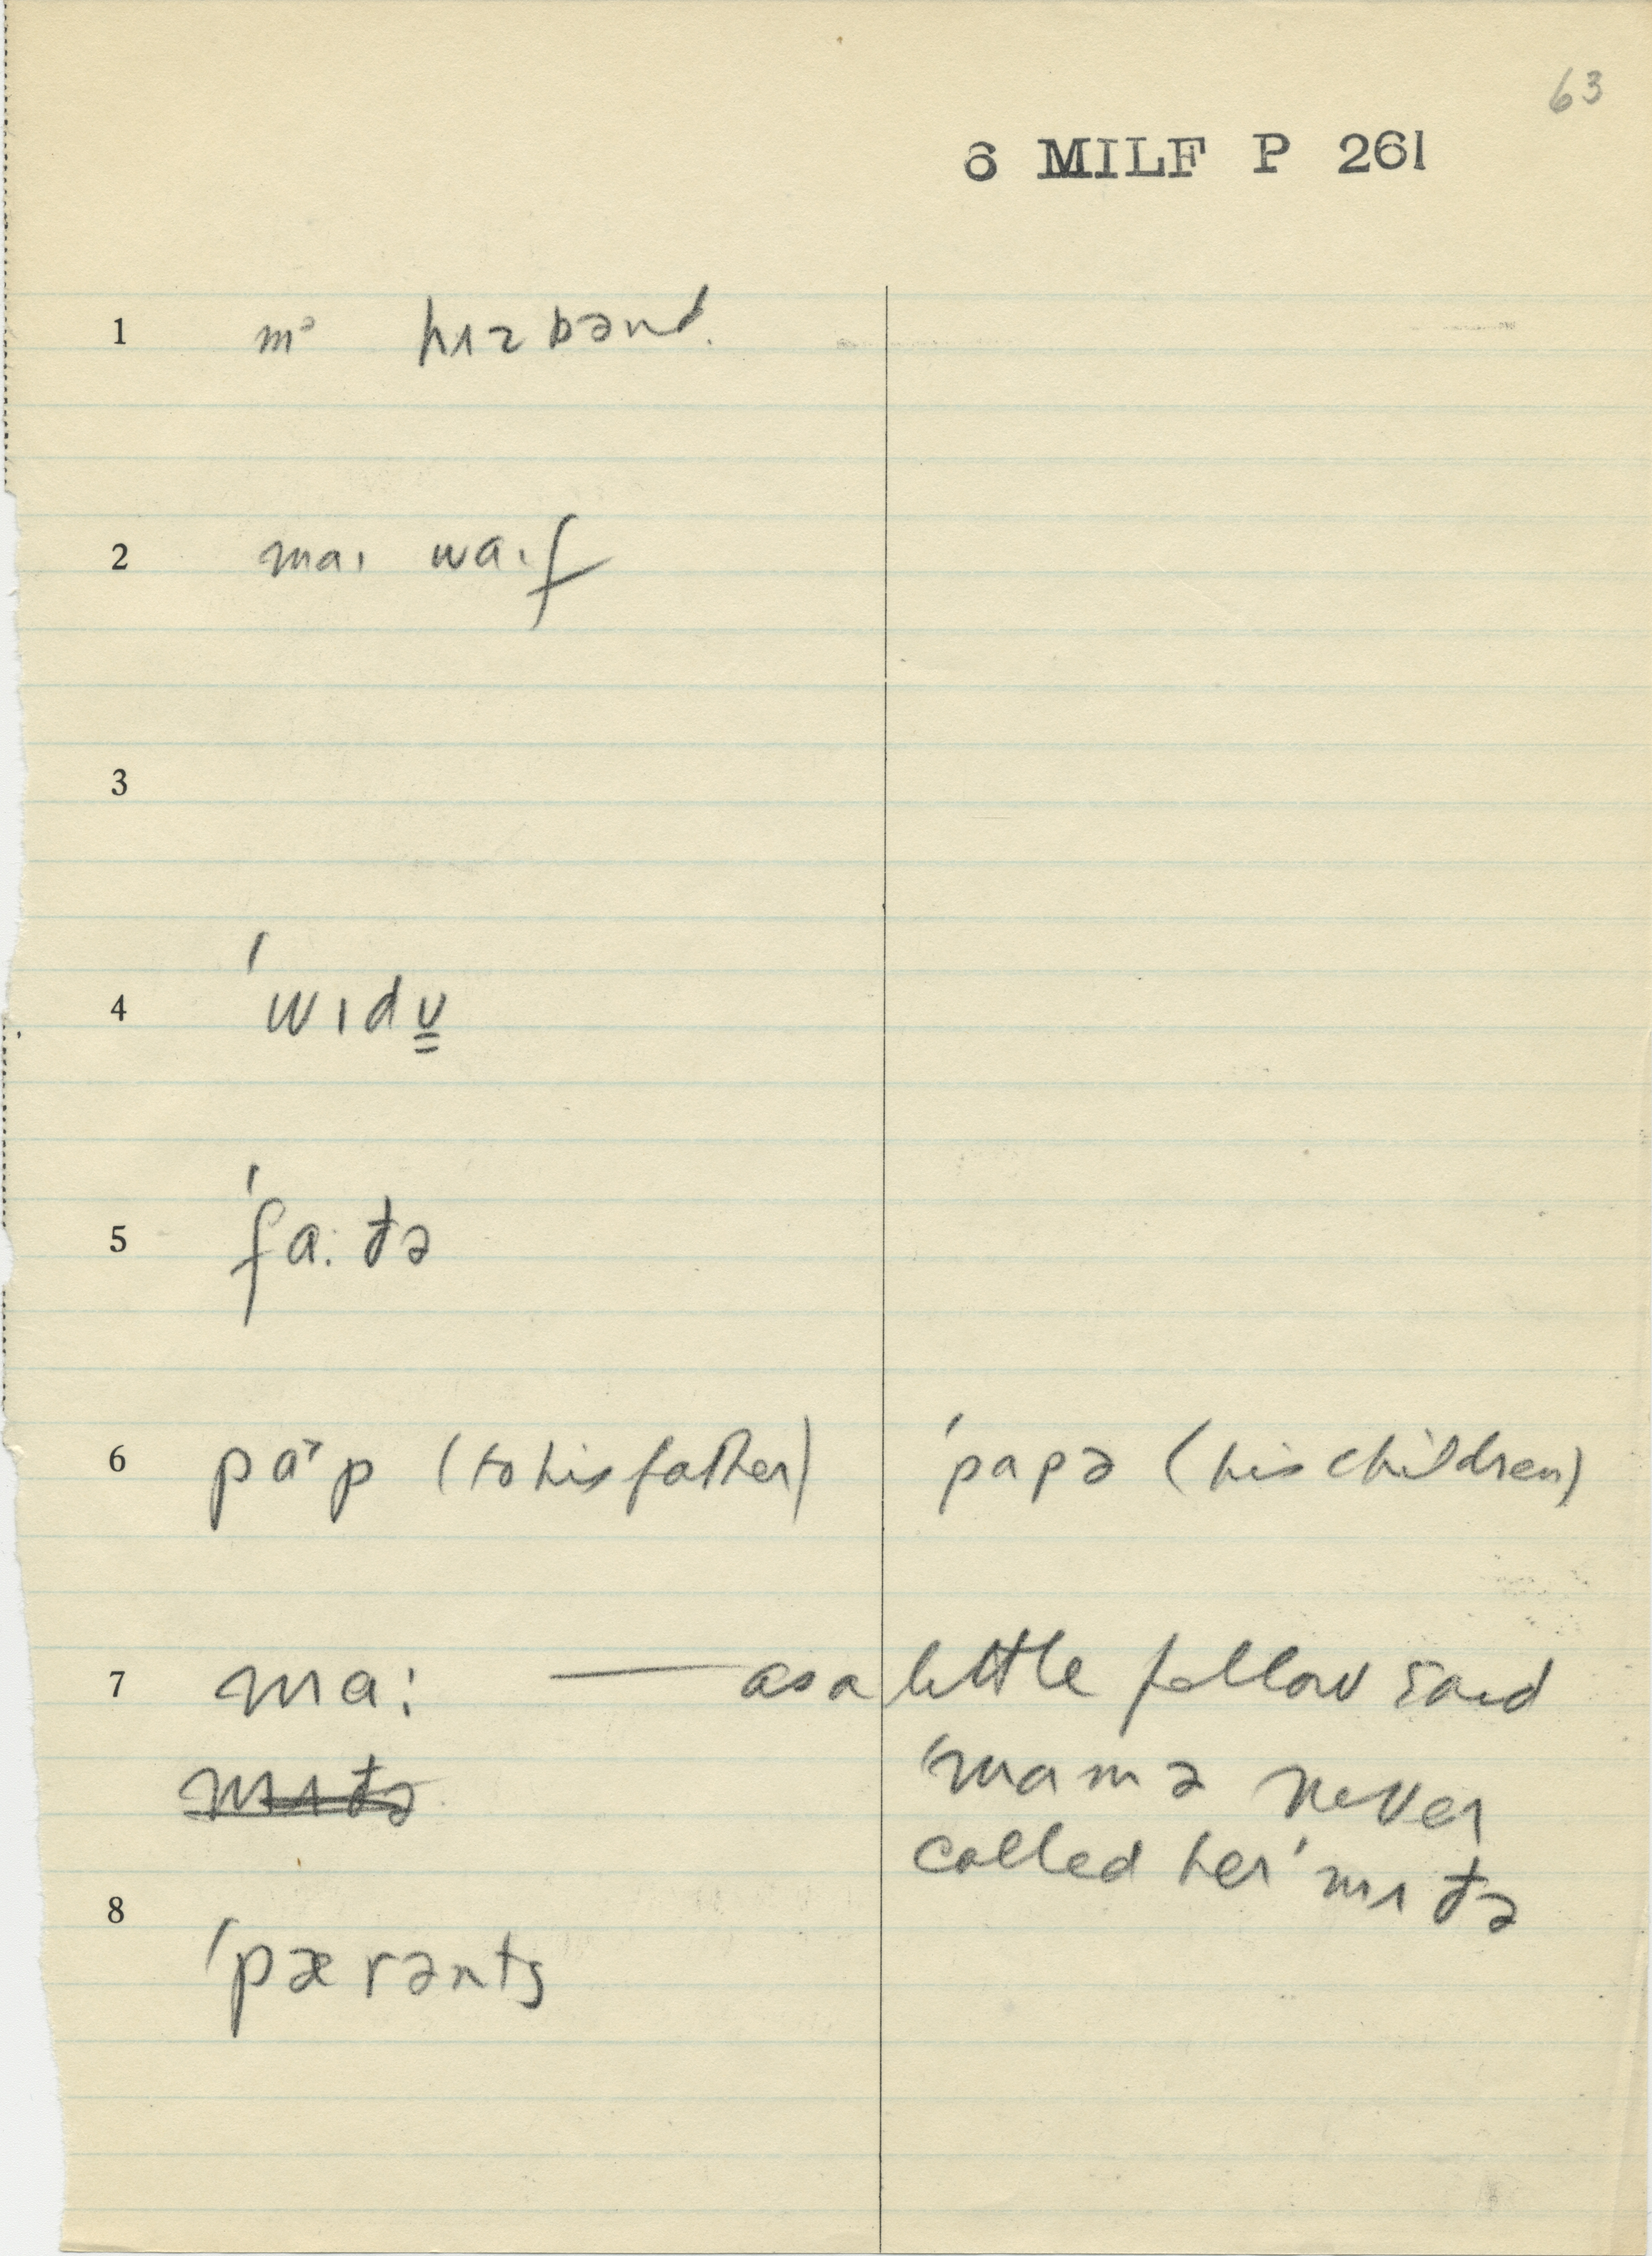 63
6 MILF P 261
1 mᵊ hɪzbənd.
2 maɪ waɪf
3
4 ˈwɪdʊ̳
5 ˈfa·đə
6 paˇp (to his father) ˈpapə (his children)
7 ma: — as a little fellow said
mɪđə ˈmamə never
called her ˈmɪđə
8
ˈpærənts